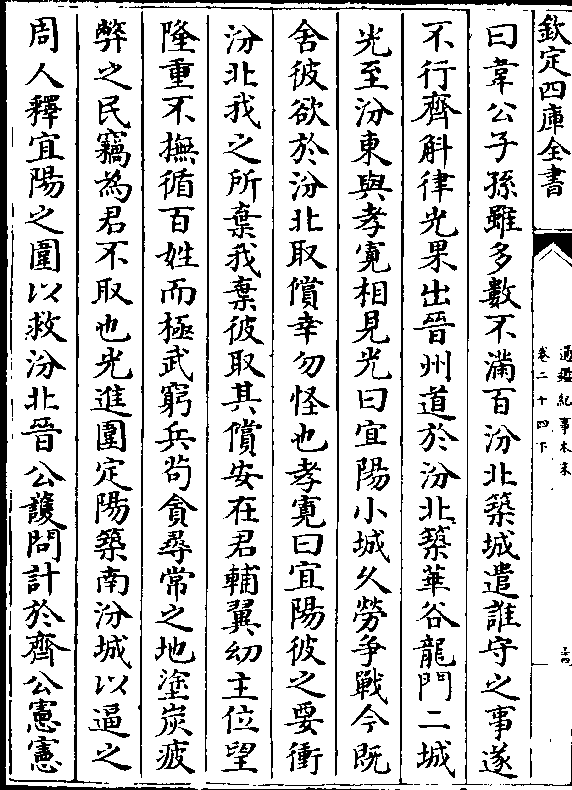 欽定四庫全書
通鑑紀事本末
卷二十四下
曰韋公子孫雖多數不滿百汾北築城遣誰守之事遂
不行齊斛律光果出晉州道於汾北築華谷龍門二城
光至汾東與孝寛相見光曰宜陽小城乆勞爭戰今既
舍彼欲於汾北取償幸勿怪也孝寛曰宜陽彼之要衝
汾北我之所棄我棄彼取其償安在君輔翼幼主位望
隆重不撫循百姓而極武窮兵茍貪尋常之地塗炭疲
弊之民竊為君不取也光進圍定陽築南汾城以逼之
周人釋宜陽之圍以救汾北晉公護問計於齊公憲憲